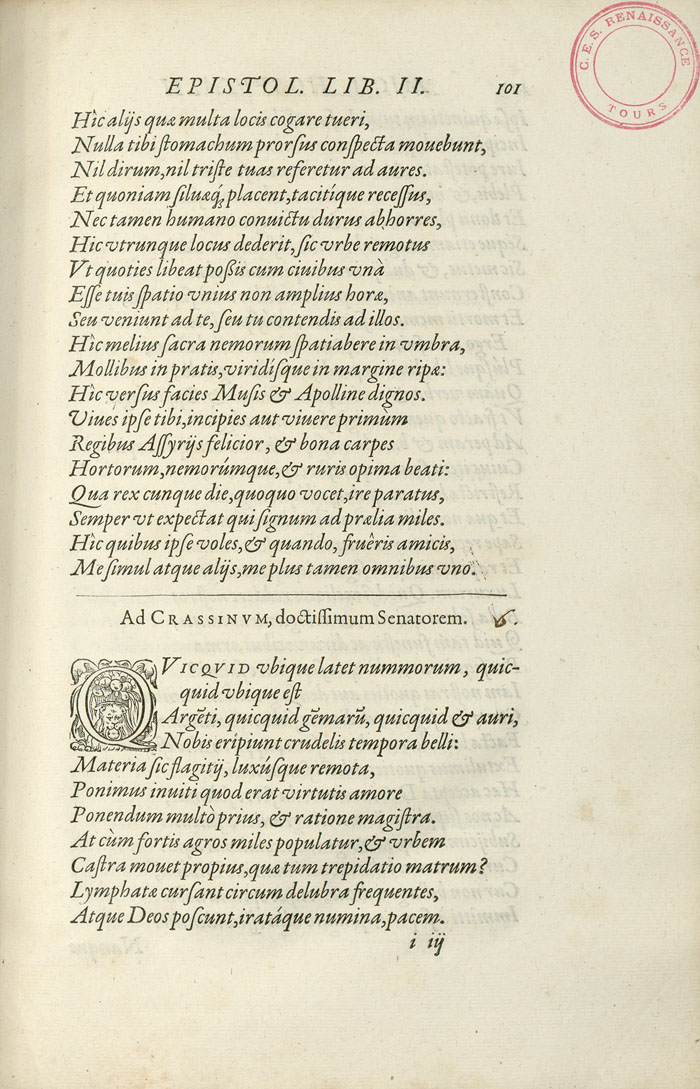 C.E.S. RENAISSANCE
TOURS
EPISTOL. LIB. II. 101
Hîc alijs quæ multa locis cogare tueri,
Nulla tibi ſtomachum prorſus conſpecta mouebunt,
Nil dirum, nil triſte tuas referetur ad aures.
Et quoniam ſiluæq́; placent, tacitíque receſſus,
Nec tamen humano conuictu durus abhorres,
Hic vtrunque locus dederit, ſic vrbe remotus
Vt quoties libeat poßis cum ciuibus vnà
Eſſe tuis ſpatio vnius non amplius horæ,
Seu veniunt ad te, ſeu tu contendis ad illos.
Hic melius ſacra nemorum ſpatiabere in vmbra,
Mollibus in pratis, viridíſque in margine ripæ:
Hîc verſus facies Muſis & Apolline dignos.
Viues ipſe tibi, incipies aut viuere primùm
Regibus Aſſyrijs felicior, & bona carpes
Hortorum, nemorúmque, & ruris opima beati:
Qua rex cunque die, quoquo vocet, ire paratus,
Semper vt expectat qui ſignum ad prælia miles.
Hîc quibus ipſe voles, & quando, fruêris amicis,
Me ſimul atque alijs, me plus tamen omnibus vno.
Ad CRASSINVM, doctiſſimum Senatorem. 6.
QVICQVID vbique latet nummorum, quic-
quid vbique eſt
Argẽti, quicquid gẽmarũ, quicquid & auri,
Nobis eripiunt crudelis tempora belli:
Materia ſic flagitij, luxúſque remota,
Ponimus inuiti quod erat virtutis amore
Ponendum multò prius, & ratione magiſtra.
At cùm fortis agros miles populatur, & vrbem
Caſtra mouet propius, quæ tum trepidatio matrum?
Lymphatæ curſant circum delubra frequentes,
Atque Deos poſcunt, iratáque numina, pacem.
i iij